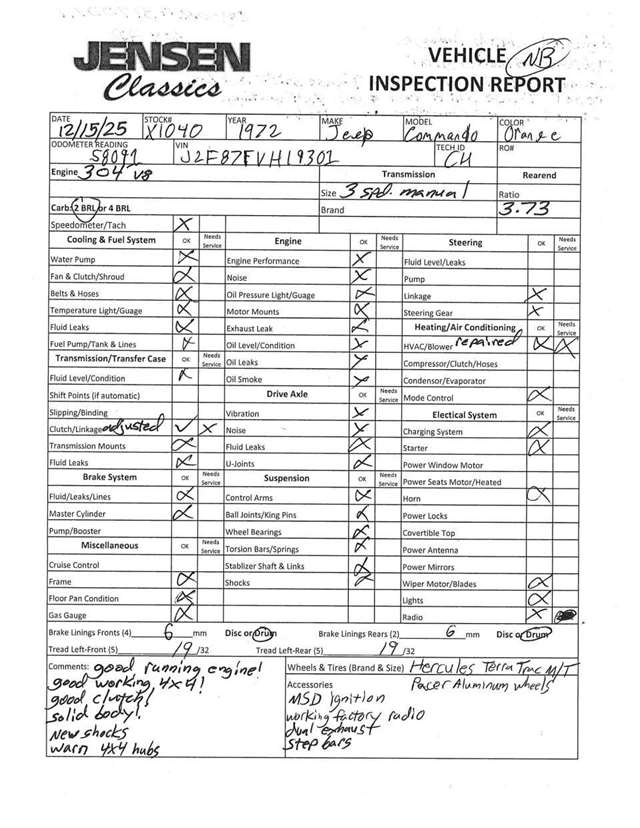 JENSEN
Classics
VEHICLE NB
INSPECTION REPORT
DATE STOCK# YEAR MAKE MODEL COLOR
12/15/25 X1040 1972 Jeep Commando Orange
ODOMETER READING VIN TECH ID RO#
58091 J2F87FVH19301 CH
Engine 304 V8 Transmission Rearend
Size 3 spd. manual Ratio
Carb: 2 BRL or 4 BRL Brand 3.73
Speedometer/Tach X
Cooling & Fuel System OK Needs Service Engine OK Needs Service Steering OK Needs Service
Water Pump X Engine Performance X Fluid Level/Leaks
Fan & Clutch/Shroud X Noise X Pump
Belts & Hoses X Oil Pressure Light/Guage X Linkage X
Temperature Light/Guage X Motor Mounts X Steering Gear X
Fluid Leaks X Exhaust Leak X Heating/Air Conditioning OK Needs Service
Fuel Pump/Tank & Lines X Oil Level/Condition X HVAC/Blower repaired X X
Transmission/Transfer Case OK Needs Service Oil Leaks X Compressor/Clutch/Hoses
Fluid Level/Condition X Oil Smoke X Condensor/Evaporator
Shift Points (if automatic) Drive Axle OK Needs Service Mode Control X
Slipping/Binding Vibration X Electical System OK Needs Service
Clutch/Linkage adjusted ✓ X Noise X Charging System X
Transmission Mounts X Fluid Leaks X Starter X
Fluid Leaks X U-Joints X Power Window Motor
Brake System OK Needs Service Suspension OK Needs Service Power Seats Motor/Heated
Fluid/Leaks/Lines X Control Arms X Horn X
Master Cylinder X Ball Joints/King Pins X Power Locks
Pump/Booster Wheel Bearings X Covertible Top
Miscellaneous OK Needs Service Torsion Bars/Springs X Power Antenna
Cruise Control Stablizer Shaft & Links X Power Mirrors
Frame X Shocks X Wiper Motor/Blades X
Floor Pan Condition X Lights X
Gas Gauge X Radio X
Brake Linings Fronts (4) 6 mm Disc or Drum Brake Linings Rears (2) 6 mm Disc or Drum
Tread Left-Front (5) 19 /32 Tread Left-Rear (5) 19 /32
Comments: good running engine! Wheels & Tires (Brand & Size) Hercules Terra Trac M/T
good working 4x4! Accessories Pacer Aluminum wheels
good clutch! MSD ignition
solid body! working factory radio
New shocks dual exhaust
warn 4x4 hubs step bars